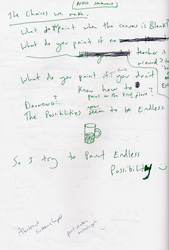 The Choices we make.
What do paint when the canvas is Blank?
What do you paint if no
teacher is around?
What do you paint if you don't
know how to
paint in the first place?
The Possibilities seem to be Endless
So I try to Paint Endless
Possibility